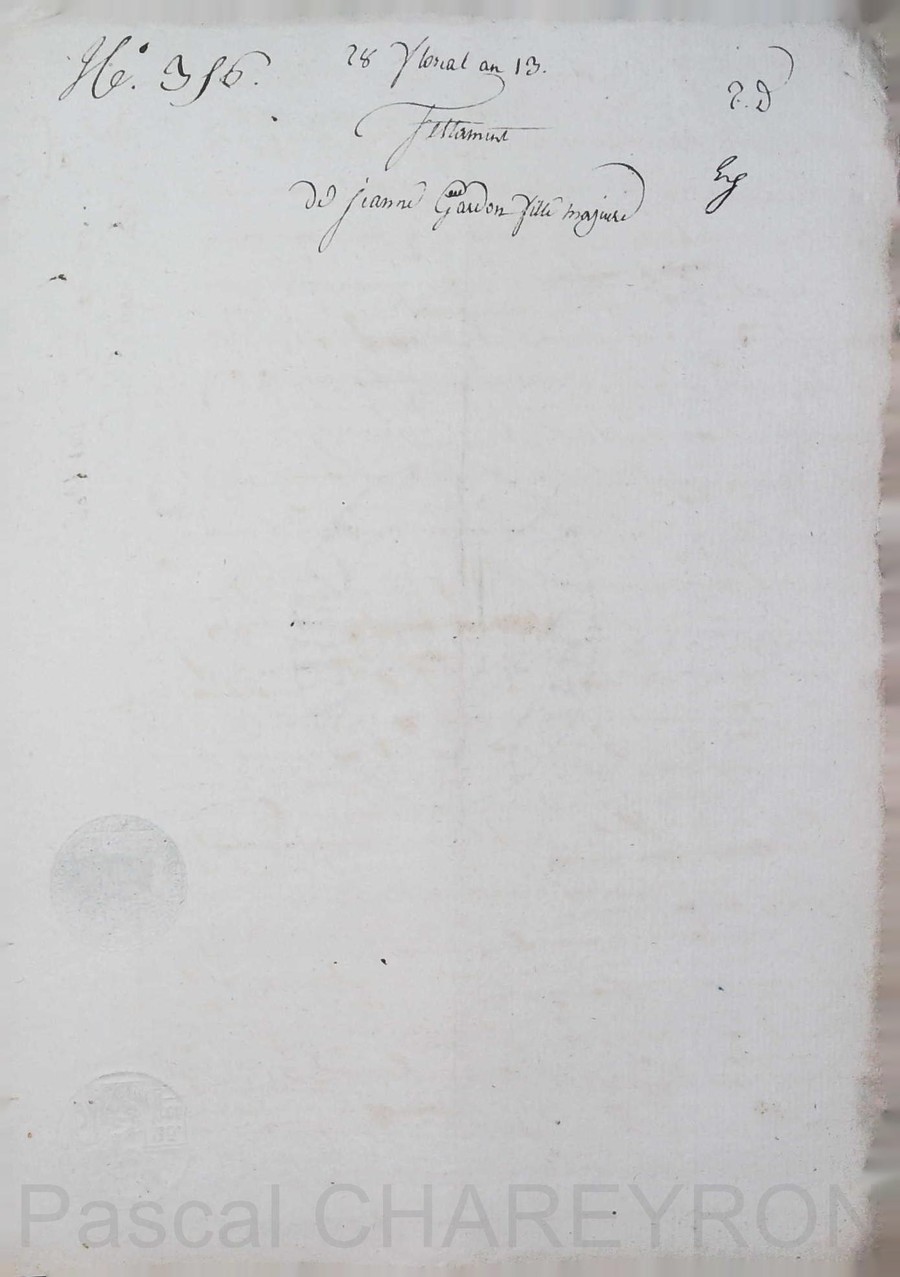 N.° 316.
28 floreal an 13.
r.d
Testament
de jeanne Gardon fille majeure
Eng
Pascal CHAREYRON